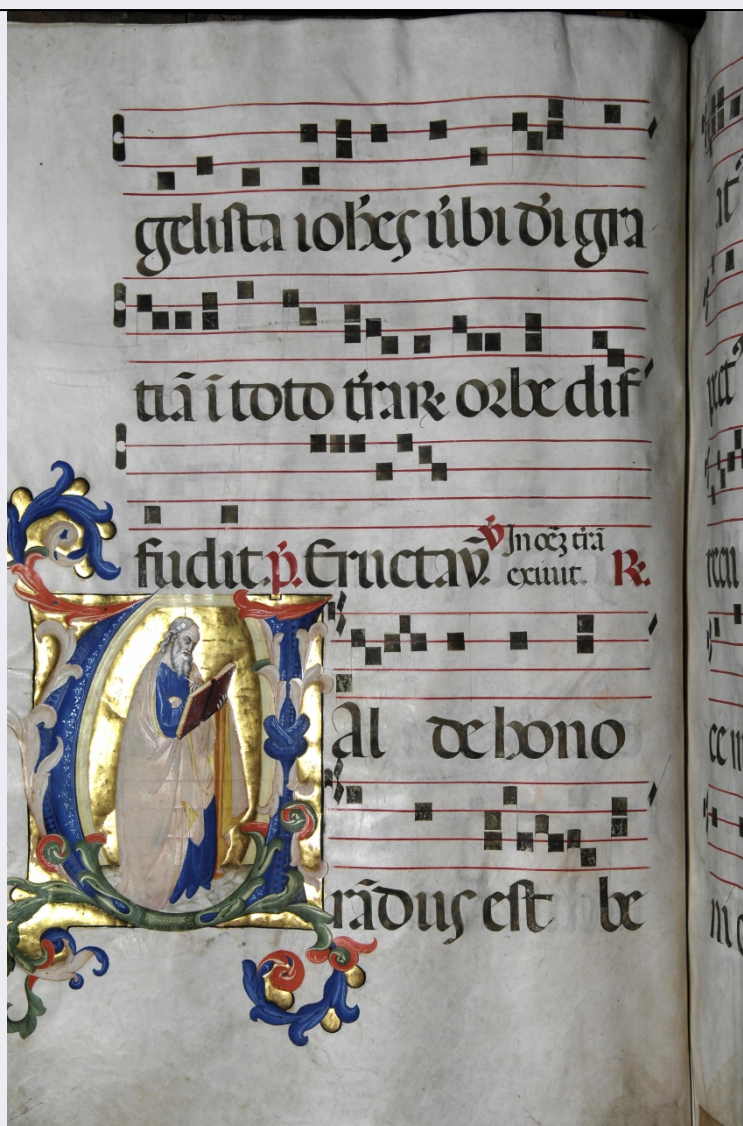 gelista ioh̅es ṽbi di̅ gra
tiā ī toto t̅rar̅ꝝ orbe dif
fudit. p̅. Eructav̅. V̅ In oēz t̅rā
exiuit. R̅.
Al de hono
rādus est be